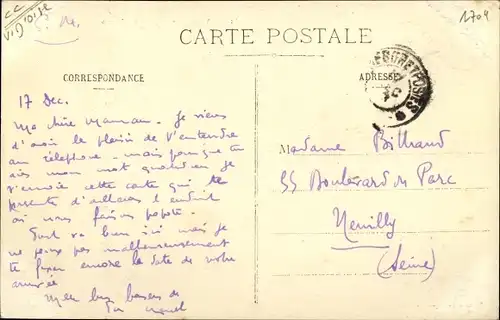 1704
CARTE POSTALE
CORRESPONDANCE
ADRESSE
17 Dec.
Ma chère Maman - Je viens
d'avoir le plaisir de t'entendre
au téléphone - mais pour que tu
aies mon mot quotidien je
t'envoie cette carte qui te
présente d'ailleurs l'endroit
où nous faisons popote.
Tout va bien ici mais je
ne peux pas malheureusement
te fixer encore la date de votre
arrivée
bons baisers de
Ton
Madame
55 Boulevard du Parc
Neuilly
(Seine)